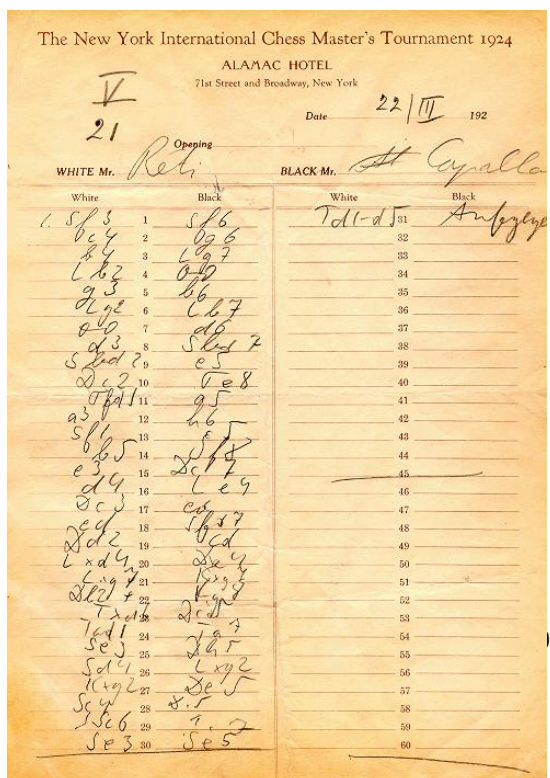 The New York International Chess Master's Tournament 1924
ALAMAC HOTEL
71st Street and Broadway, New York
V
21
Date 22/III 192
Opening
WHITE Mr. Reti BLACK Mr.
White Black White Black
1. Sf3 1 Sf6 Td1-d5 31
c4 2 g6 32
b4 3 Lg7 33
Lb2 4 0-0 34
g3 5 b6 35
Lg2 6 Lb7 36
0-0 7 d6 37
d3 8 Sbd7 38
Sbd2 9 e5 39
Dc2 10 Te8 40
Tfd1 11 a5 41
a3 12 h6 42
Sf1 13 c5 43
b5 14 Sf8 44
e3 15 Dc7 45
d4 16 Le4 46
Dc3 17 ed 47
ed 18 48
Dd2 19 cd 49
Lxd4 20 De4 50
Lxg7 21 Kxg7 51
22 Kg8 52
Txd6 23 Dc5 53
Tad1 24 Ta7 54
Se3 25 Dh5 55
Sd4 26 Lxg2 56
Kxg2 27 De5 57
Sc4 28 58
Sc6 29 59
Se3 30 Se5 60